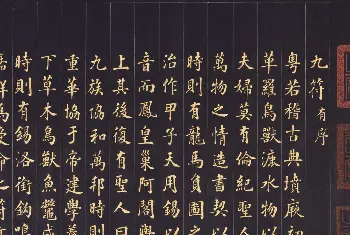 九符有序
粵若稽古典墳厥初
草羅鳥獸溓水物以
夫婦莫有倫紀聖人
萬物之情造書契以
時則有龍馬負圖
治作甲子天用錫以
音而鳳皇巢阿閣
上其後復有聖人曰
九族協和萬邦時則
重華協于帝建學
下草木鳥獸魚鱉咸
時則有錫洛銜鈎
群為受命之符